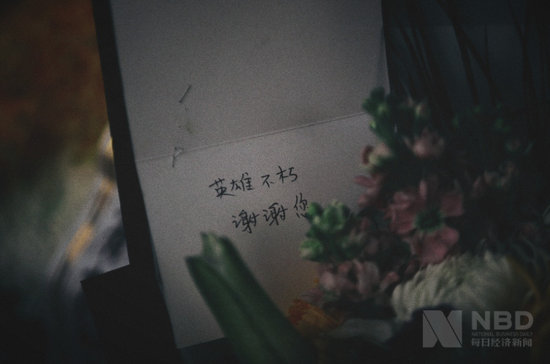 英雄不朽
谢谢您
NBD
NATIONAL BUSINESS DAILY
每日经济新闻